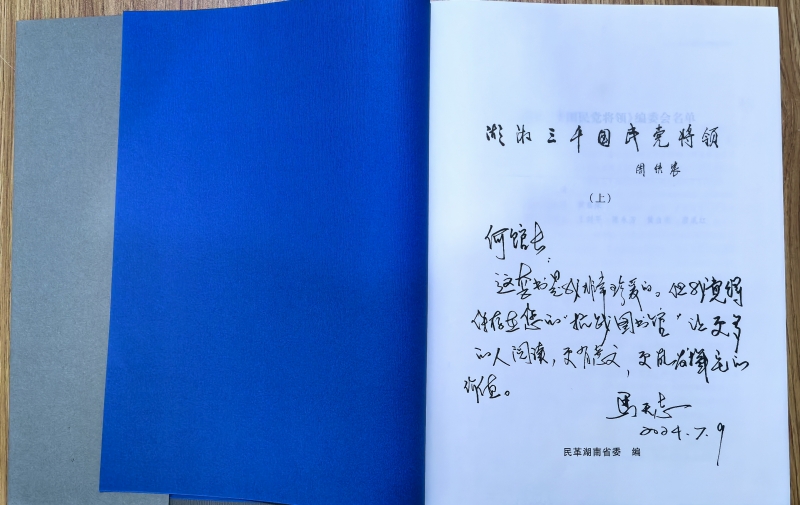 湖湘三千国民党将领
(上)
何馆长:
这套书是我非常珍爱的。但我觉得
保存在您的“抗战图书馆”让更多
的人阅读,更有意义,更能发挥它的
价值。
2024.7.9
民革湖南省委 编